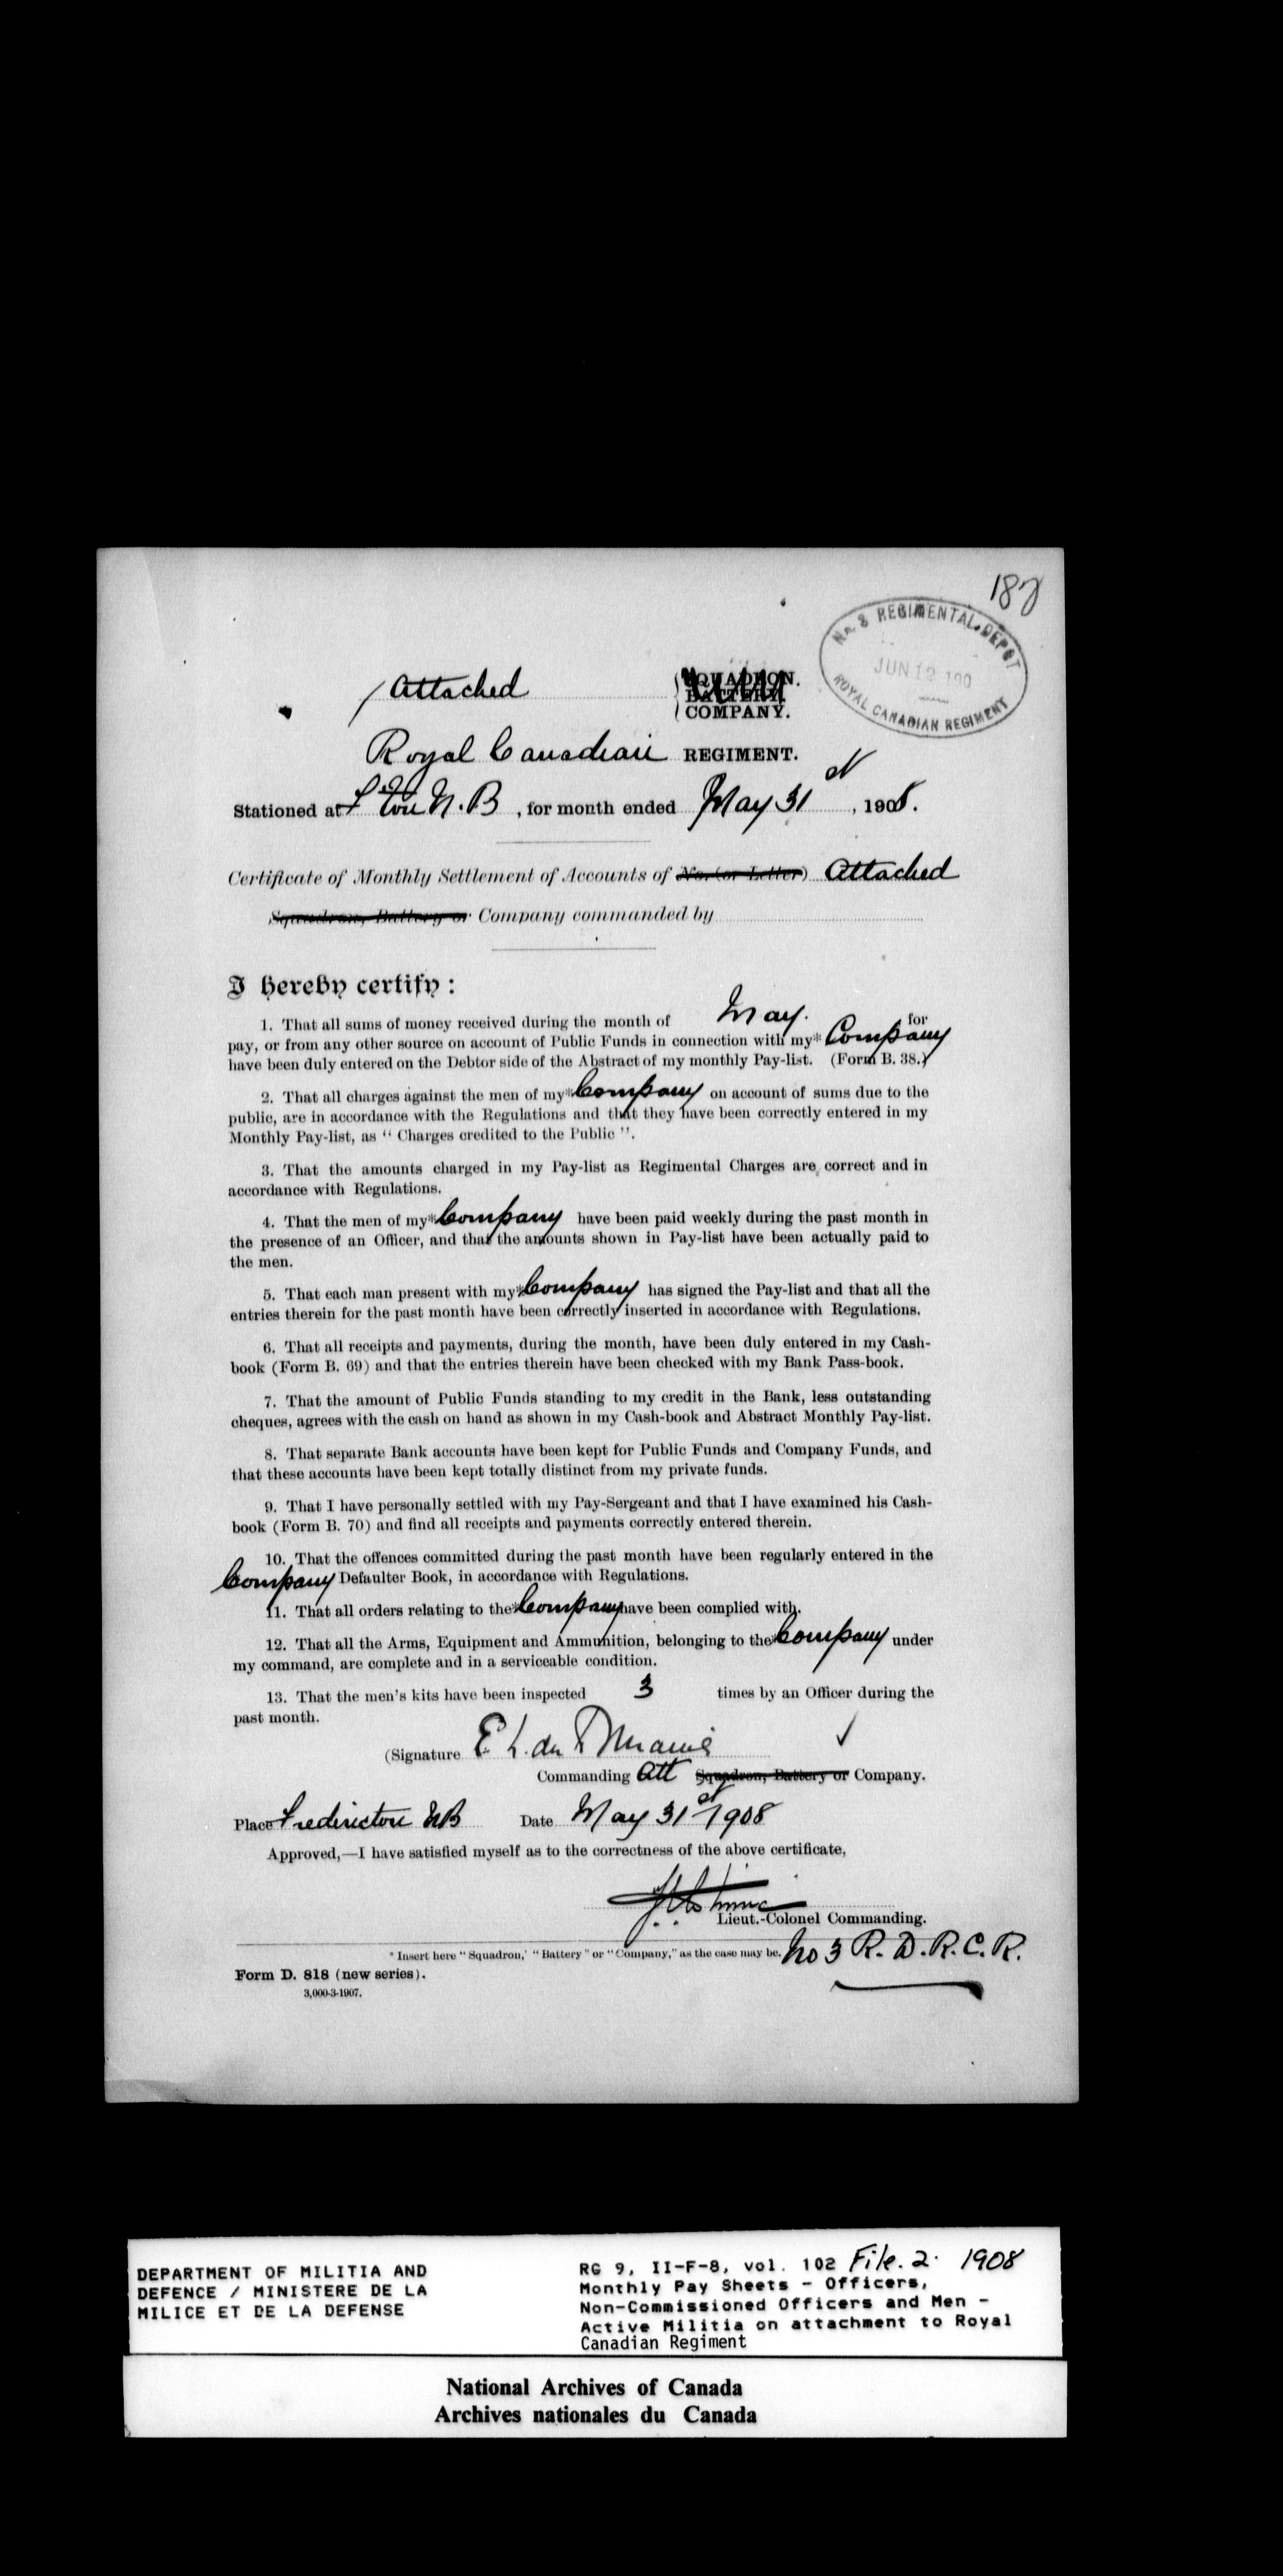 187
No. 3 REGIMENTAL DEPOT
JUN 12 190
ROYAL CANADIAN REGIMENT
Attached
SQUADRON.
BATTERY.
COMPANY.
Royal Canadian REGIMENT.
Stationed at F'ton N.B, for month ended May 31st, 1908.
Certificate of Monthly Settlement of Accounts of No. (or Letter) Attached
Squadron, Battery or Company commanded by
I hereby certify:
1. That all sums of money received during the month of May. for
pay, or from any other source on account of Public Funds in connection with my* Company
have been duly entered on the Debtor side of the Abstract of my monthly Pay-list. (Form B. 38.)
2. That all charges against the men of my* Company on account of sums due to the
public, are in accordance with the Regulations and that they have been correctly entered in my
Monthly Pay-list, as “ Charges credited to the Public ”.
3. That the amounts charged in my Pay-list as Regimental Charges are correct and in
accordance with Regulations.
4. That the men of my* Company have been paid weekly during the past month in
the presence of an Officer, and that the amounts shown in Pay-list have been actually paid to
the men.
5. That each man present with my* Company has signed the Pay-list and that all the
entries therein for the past month have been correctly inserted in accordance with Regulations.
6. That all receipts and payments, during the month, have been duly entered in my Cash-
book (Form B. 69) and that the entries therein have been checked with my Bank Pass-book.
7. That the amount of Public Funds standing to my credit in the Bank, less outstanding
cheques, agrees with the cash on hand as shown in my Cash-book and Abstract Monthly Pay-list.
8. That separate Bank accounts have been kept for Public Funds and Company Funds, and
that these accounts have been kept totally distinct from my private funds.
9. That I have personally settled with my Pay-Sergeant and that I have examined his Cash-
book (Form B. 70) and find all receipts and payments correctly entered therein.
10. That the offences committed during the past month have been regularly entered in the
Company Defaulter Book, in accordance with Regulations.
11. That all orders relating to the* Company have been complied with.
12. That all the Arms, Equipment and Ammunition, belonging to the* Company under
my command, are complete and in a serviceable condition.
13. That the men's kits have been inspected 3 times by an Officer during the
past month.
(Signature E. L. du
Commanding Att Squadron, Battery or Company.
Place Fredericton NB Date May 31st 1908
Approved,—I have satisfied myself as to the correctness of the above certificate,
Lieut.-Colonel Commanding.
* Insert here “ Squadron,' “ Battery ” or “ Company,” as the case may be. No 3 R. D. R. C. R.
Form D. 818 (new series).
3,000-3-1907.
DEPARTMENT OF MILITIA AND
DEFENCE / MINISTERE DE LA
MILICE ET DE LA DEFENSE
RG 9, II-F-8, vol. 102 File. 2. 1908
Monthly Pay Sheets - Officers,
Non-Commissioned Officers and Men -
Active Militia on attachment to Royal
Canadian Regiment
National Archives of Canada
Archives nationales du Canada